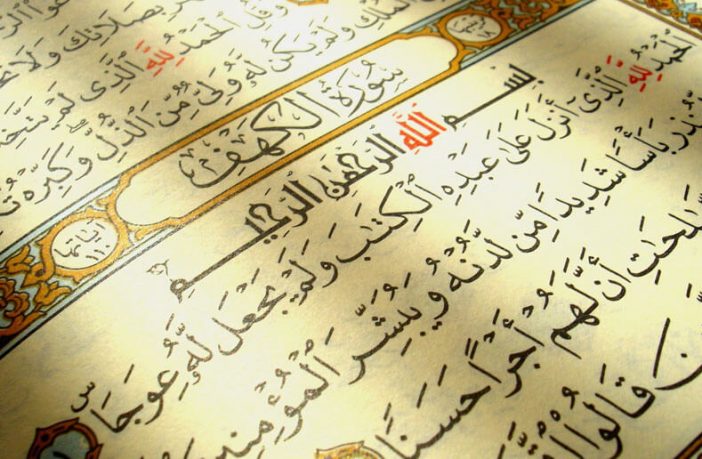 بِصَلَاتِكَ وَلَا
وَقُلِ ٱلْحَمْدُ لِلَّهِ ٱلَّذِى لَمْ يَتَّخِ
ٱلْمُلْكِ وَلَمْ يَكُن لَّهُۥ وَلِىٌّ مِّنَ ٱلذُّلِّ وَكَبِّرْهُ
سُورَةُ ٱلْكَهْفِ
آيَاتُهَا ١١٠
بِسْمِ ٱللَّهِ ٱلرَّحْمَٰنِ ٱلرَّحِيمِ
ٱلْحَمْدُ لِلَّهِ ٱلَّذِىٓ أَنزَلَ عَلَىٰ عَبْدِهِ ٱلْكِتَٰبَ وَلَمْ يَجْعَل لَّهُۥ عِوَجَاۜ
ُنذِرَ بَأْسًا شَدِيدًا مِّن لَّدُنْهُ وَيُبَشِّرَ ٱلْمُؤْمِنِينَ
لِحَٰتِ أَنَّ لَهُمْ أَجْرًا حَسَنًا
قَالُوا۟ ٱتَّ